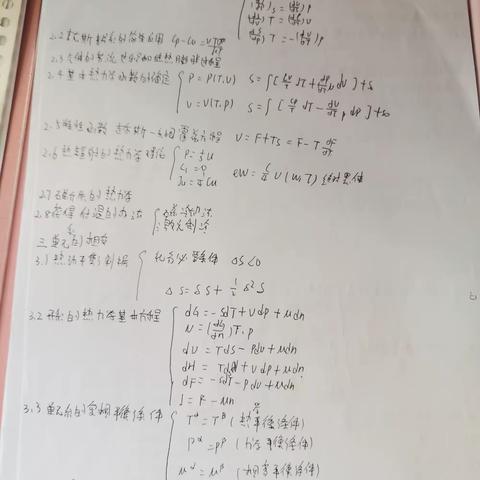 (∂/∂)s = (∂/∂)p
(∂/∂)T = (∂/∂)v
(∂/∂)T = -(∂/∂)p
2.2 麦斯韦关系的简单应用 Cp-Cv=
2.3 气体的节流过程和绝热膨胀过程
2.4 基本热力学函数的确定 { P=P(T,V) S=∫[Cv/T dT+(∂P/∂T)v dV]+S0
V=V(T,P) S=∫[Cp/T dT-(∂V/∂T)p dP]+S0
2.5 特性函数 吉布斯-亥姆霍兹方程 U=F+TS=F-T dF/dT
2.6 热辐射的热力学理论 { P=1/3 u
Ju=c/4 u ew=c/4 u(w,T) 绝对黑体
2.7 磁介质的热力学
2.8 获得低温的方法 { 磁
制冷
三 单元系的相变
3.1 热动平衡判据 { ΔS<0
ΔS=δS+1/2 δ²S
3.2 开系的热力学基本方程 { dG=-SdT+Vdp+μdn
μ=(∂G/∂n)T,p
dU=TdS-pdV+μdn
dH=TdS+Vdp+μdn
dF=-SdT-pdV+μdn
J=F-μn
3.3 单元系的复相平衡条件 { Tα=Tβ (热平衡条件)
Pα=Pβ (力学平衡条件)
μα=μβ (相变平衡条件)